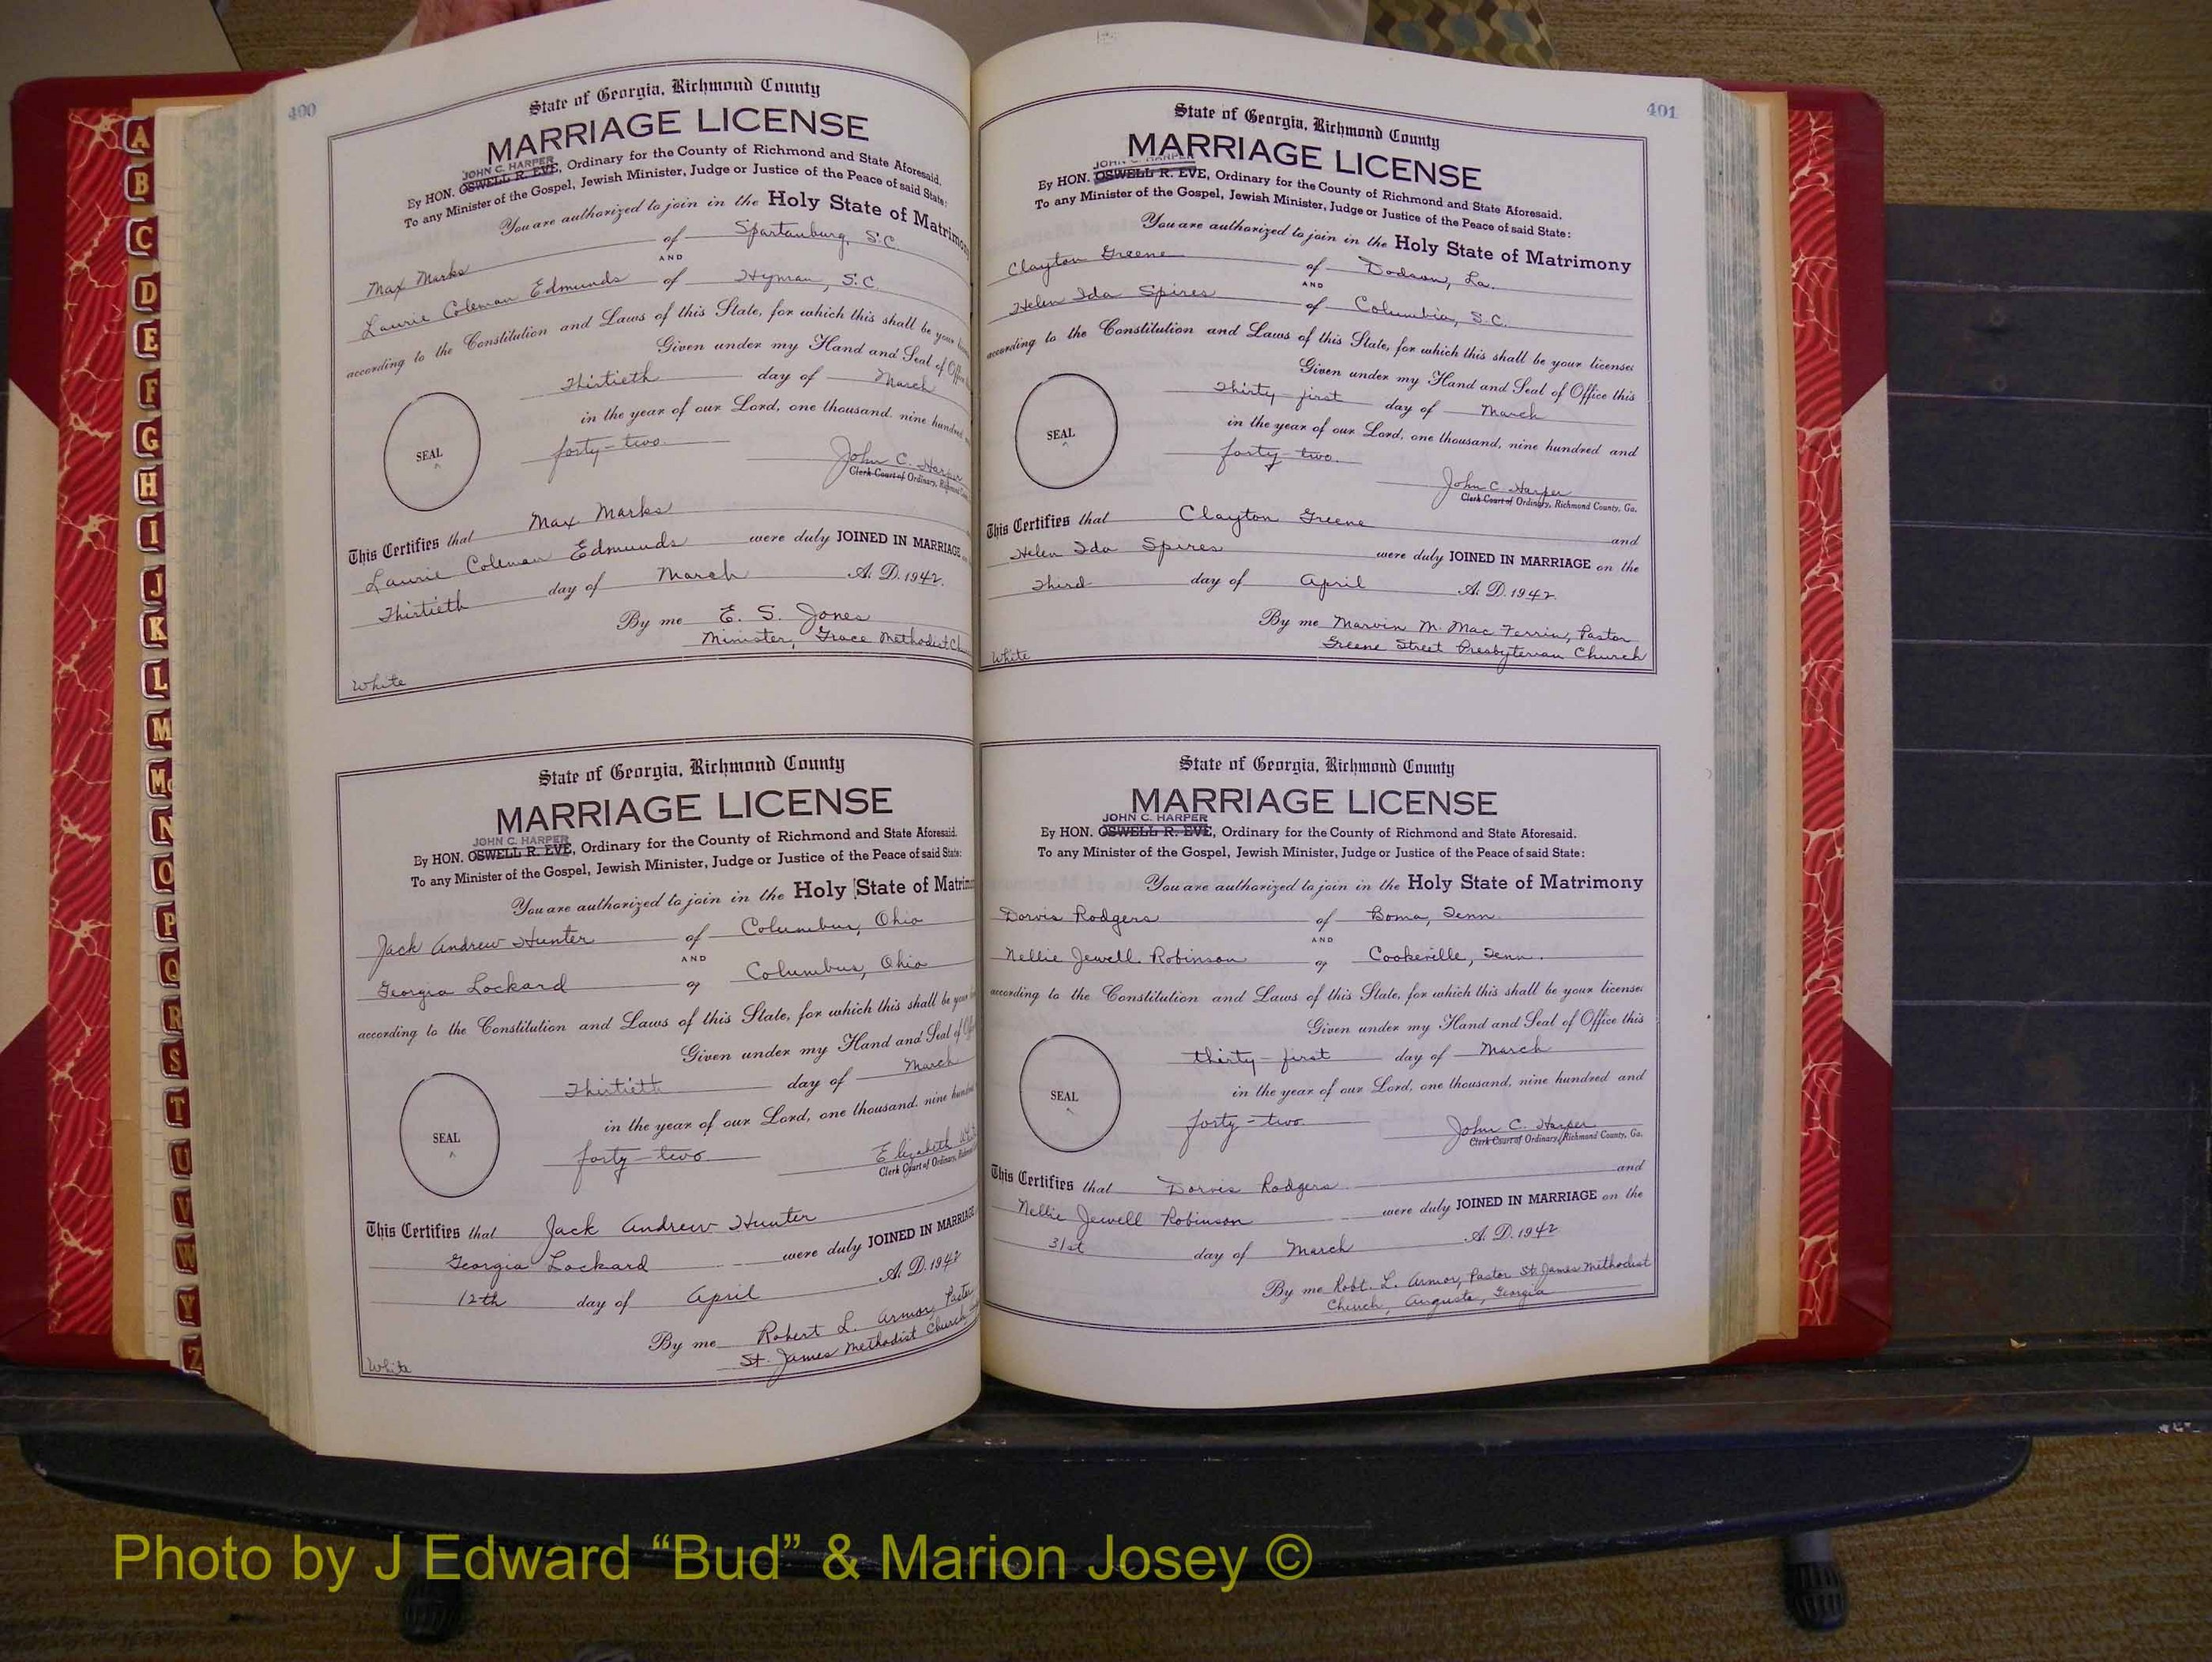 400
State of Georgia, Richmond County
MARRIAGE LICENSE
JOHN C. HARPER
By HON. OSWELL R. EVE, Ordinary for the County of Richmond and State Aforesaid.
To any Minister of the Gospel, Jewish Minister, Judge or Justice of the Peace of said State:
You are authorized to join in the Holy State of Matrimony
Max Marks of Spartanburg, S.C.
AND
Laurie Coleman Edmunds of Hyman, S.C.
according to the Constitution and Laws of this State, for which this shall be your
Given under my Hand and Seal of
Thirtieth day of March
in the year of our Lord, one thousand, nine hundred
forty-two.
John C. Harper
SEAL
Clerk Court of Ordinary, Richmond
This Certifies that Max Marks
Laurie Coleman Edmunds were duly JOINED IN MARRIAGE
Thirtieth day of March A. D. 1942.
By me E. S. Jones
Minister, Grace Methodist
White
State of Georgia, Richmond County
MARRIAGE LICENSE
JOHN C. HARPER
By HON. OSWELL R. EVE, Ordinary for the County of Richmond and State Aforesaid.
To any Minister of the Gospel, Jewish Minister, Judge or Justice of the Peace of said State:
You are authorized to join in the Holy State of
Jack Andrew Hunter of Columbus, Ohio
AND
Georgia Lockard of Columbus, Ohio
according to the Constitution and Laws of this State, for which this shall be your
Given under my Hand and Seal of
Thirtieth day of March
in the year of our Lord, one thousand, nine
SEAL
forty-two.
Elizabeth
Clerk Court of Ordinary,
This Certifies that Jack Andrew Hunter
Georgia Lockard were duly JOINED IN MARRIAGE
12th day of April A. D. 1942
By me Robert L. Armor, Pastor
St. James Methodist Church
White
401
State of Georgia, Richmond County
MARRIAGE LICENSE
JOHN C. HARPER
By HON. OSWELL R. EVE, Ordinary for the County of Richmond and State Aforesaid.
To any Minister of the Gospel, Jewish Minister, Judge or Justice of the Peace of said State:
You are authorized to join in the Holy State of Matrimony
Clayton Greene of Dodson, La.
AND
Helen Ida Spires of Columbia, S.C.
according to the Constitution and Laws of this State, for which this shall be your license:
Given under my Hand and Seal of Office this
Thirty first day of March
in the year of our Lord, one thousand, nine hundred and
SEAL
forty-two.
John C. Harper
Clerk Court of Ordinary, Richmond County, Ga.
This Certifies that Clayton Greene and
Helen Ida Spires were duly JOINED IN MARRIAGE on the
Third day of April A. D. 1942.
By me Marvin M. Mac Ferrin, Pastor
Greene Street Presbyterian Church
White
State of Georgia, Richmond County
MARRIAGE LICENSE
JOHN C. HARPER
By HON. OSWELL R. EVE, Ordinary for the County of Richmond and State Aforesaid.
To any Minister of the Gospel, Jewish Minister, Judge or Justice of the Peace of said State:
You are authorized to join in the Holy State of Matrimony
Dorvis Rodgers of Boma, Tenn.
AND
Nellie Jewell Robinson of Cookeville, Tenn.
according to the Constitution and Laws of this State, for which this shall be your license:
Given under my Hand and Seal of Office this
thirty-first day of March
in the year of our Lord, one thousand, nine hundred and
SEAL
forty-two.
John C. Harper
Clerk Court of Ordinary, Richmond County, Ga.
This Certifies that Dorvis Rodgers and
Nellie Jewell Robinson were duly JOINED IN MARRIAGE on the
31st day of March A. D. 1942
By me Robt. L. Armor, Pastor St. James Methodist
Church, Augusta, Georgia
A
B
C
D
E
F
G
H
I
J
K
L
M
Mc
N
O
P
Q
R
S
T
U
V
W
Y
Z
Photo by J Edward “Bud” & Marion Josey ©